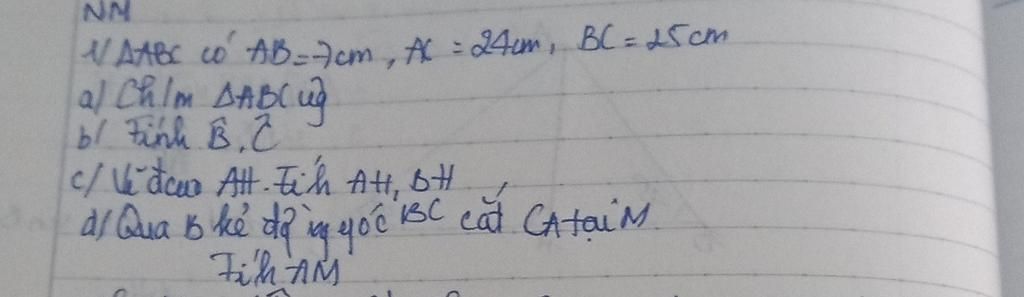 NM
1/ ΔABC có AB=7cm, AC = 24cm, BC = 25cm
a) Ch/m ΔABC vg
b/ Tính B̂, Ĉ
c/ Vẽ đcao AH. Tính AH, BH
d/ Qua B kẻ đg vg góc BC cắt CA tại M
Tính AM